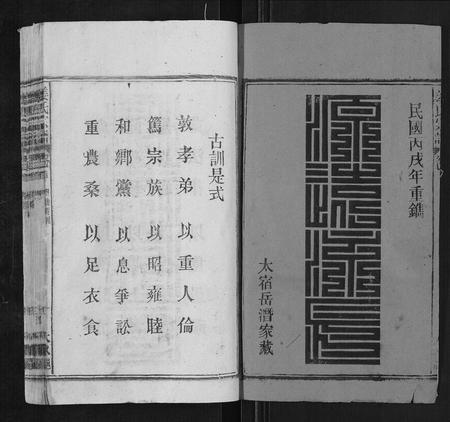 民國丙戌年重鐫
太宿岳潛家藏
古訓是式
敦孝弟 以重人倫
篤宗族 以昭雍睦
和鄉黨 以息爭訟
重農桑 以足衣食